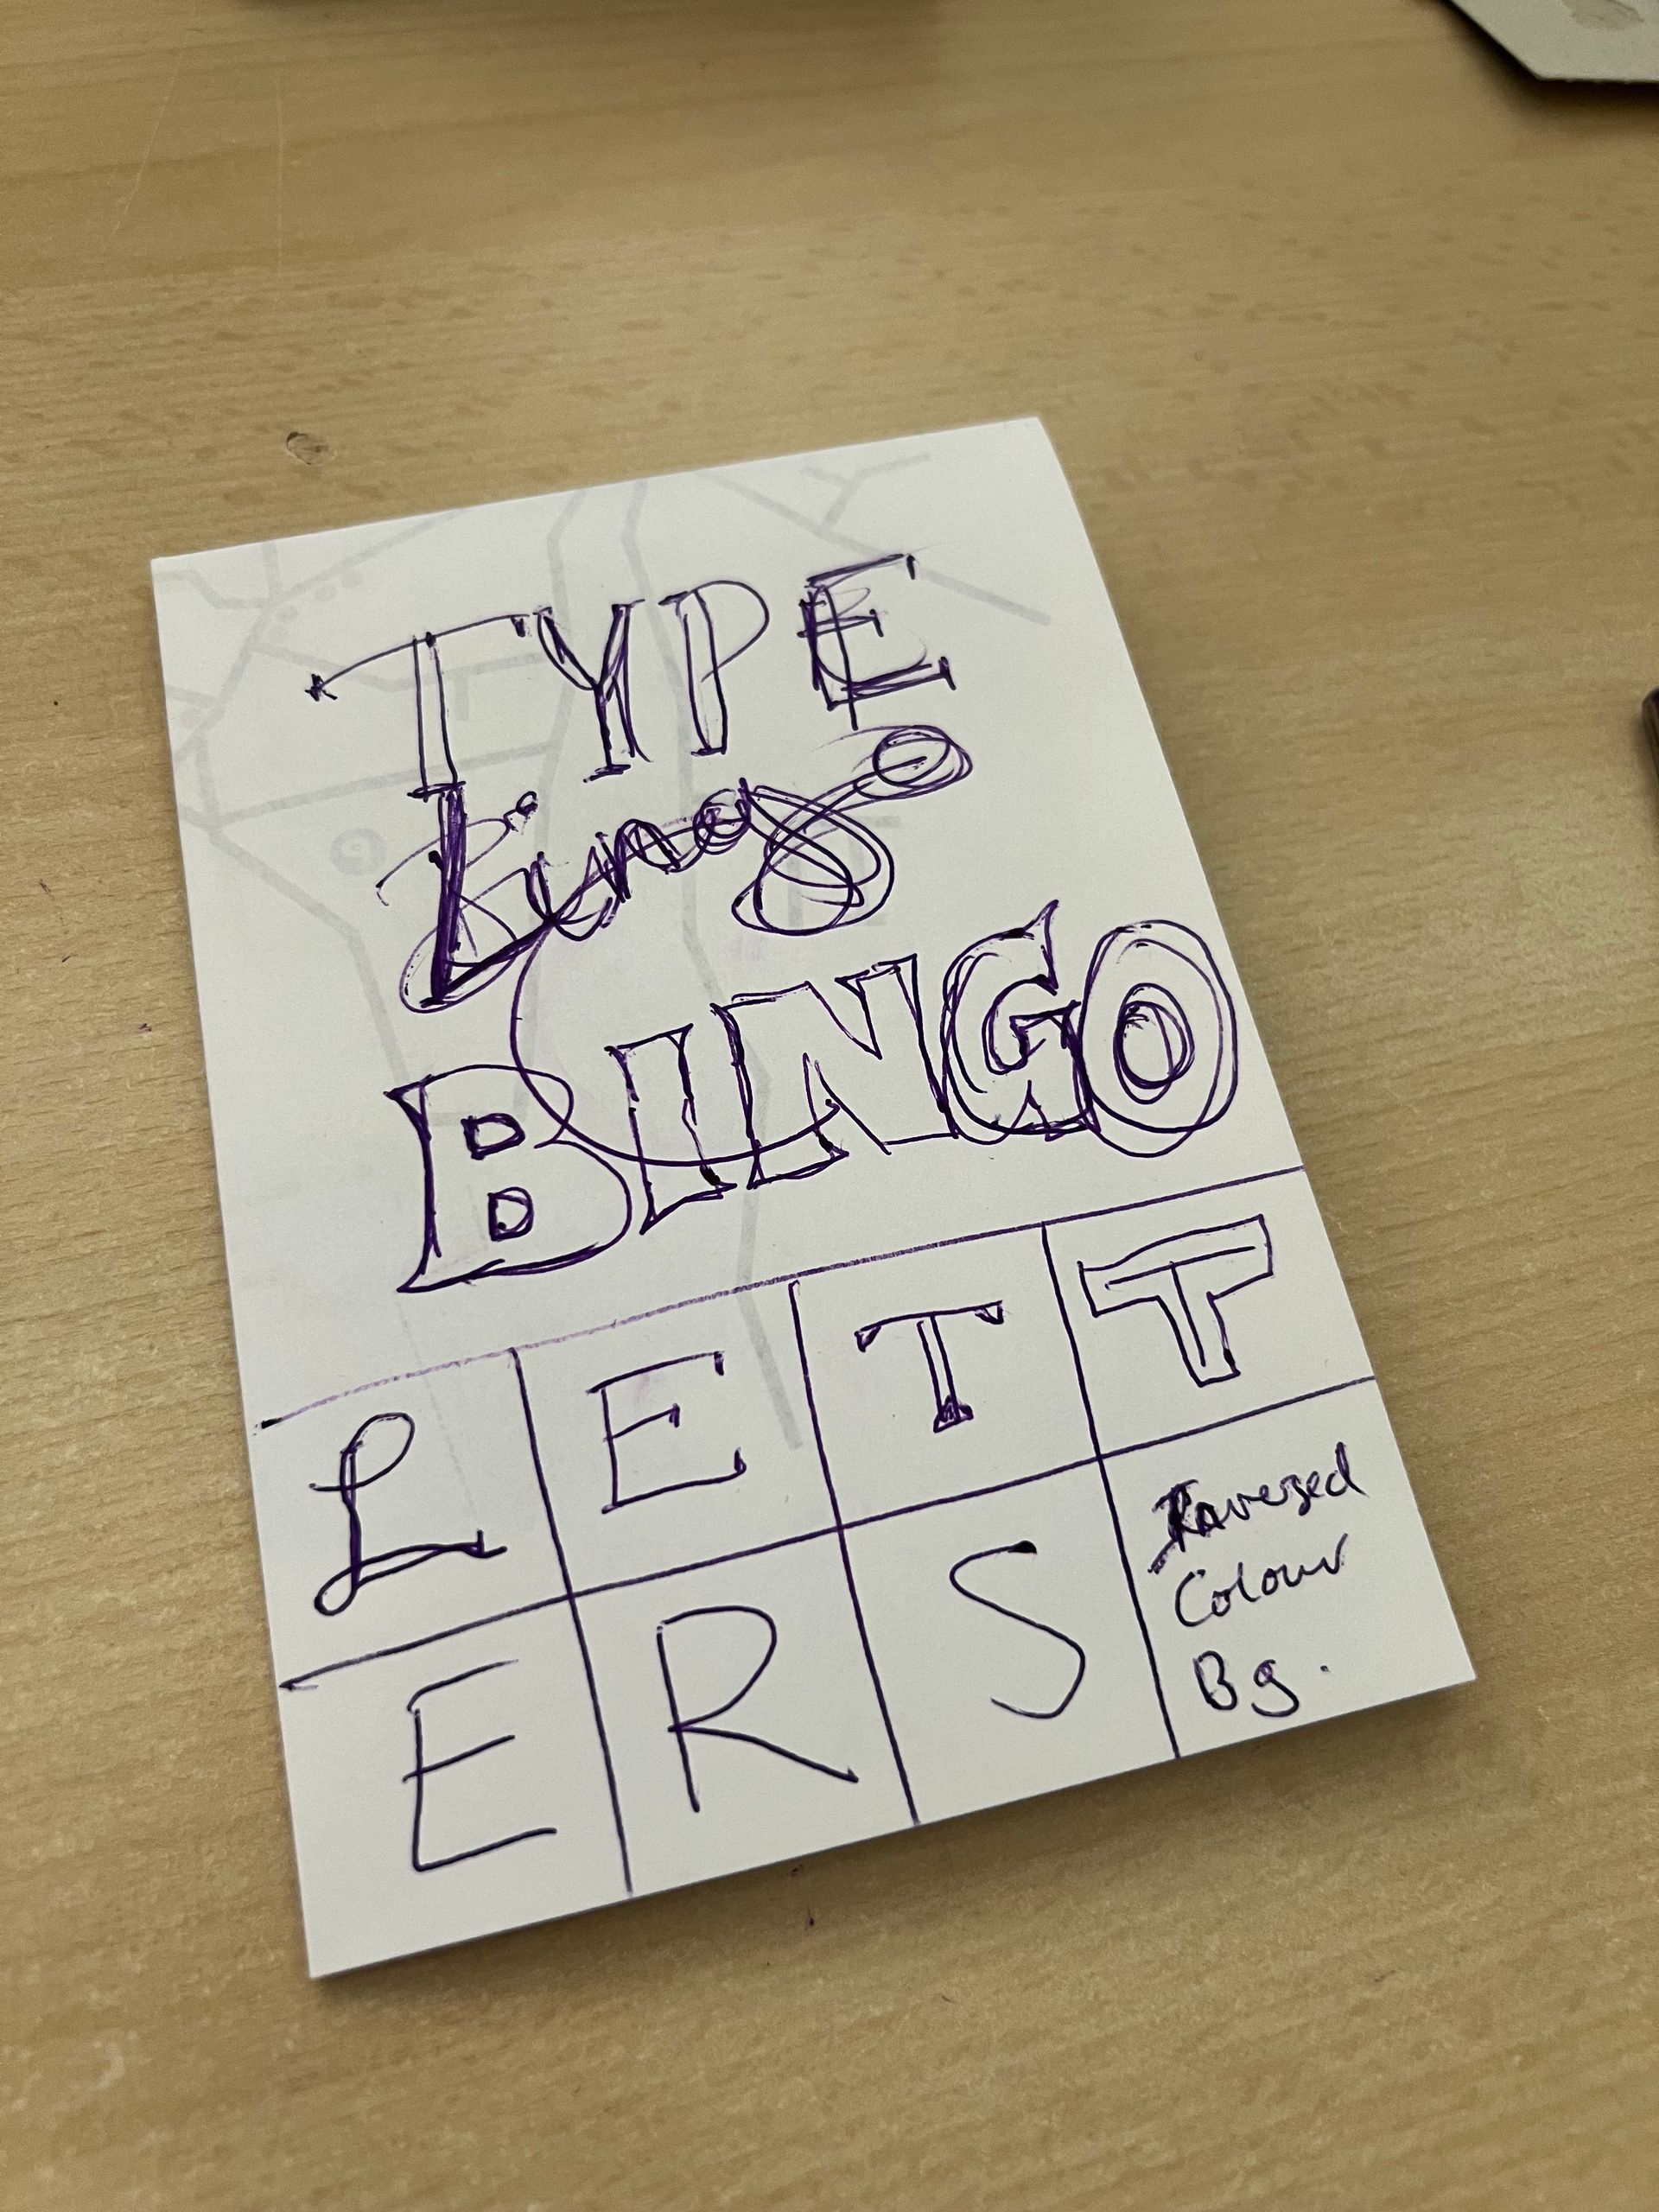 TYPE
BINGO
L E T T
E R S Reversed
Colour
Bg.